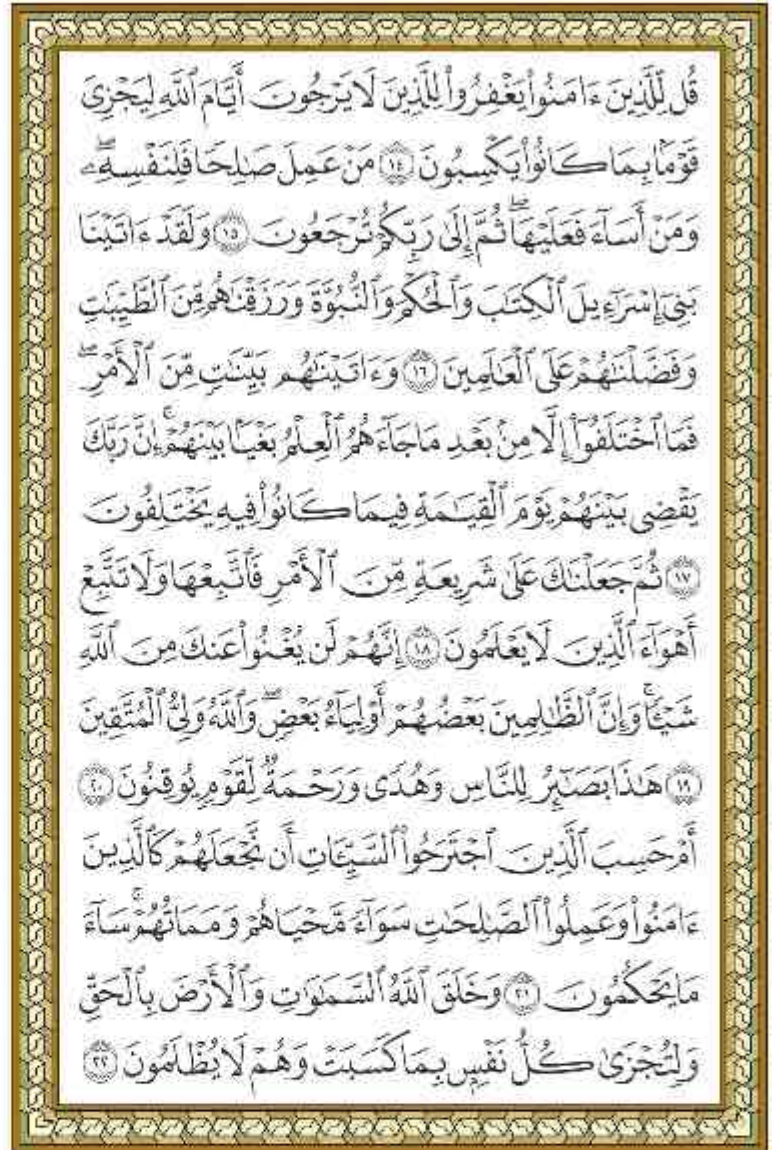 قُل لِّلَّذِينَ ءَامَنُوا۟ يَغْفِرُوا۟ لِلَّذِينَ لَا يَرْجُونَ أَيَّامَ ٱللَّهِ لِيَجْزِىَ
قَوْمًۢا بِمَا كَانُوا۟ يَكْسِبُونَ ١٤ مَنْ عَمِلَ صَٰلِحًا فَلِنَفْسِهِۦ ۖ
وَمَنْ أَسَآءَ فَعَلَيْهَا ۖ ثُمَّ إِلَىٰ رَبِّكُمْ تُرْجَعُونَ ١٥ وَلَقَدْ ءَاتَيْنَا
بَنِىٓ إِسْرَٰٓءِيلَ ٱلْكِتَٰبَ وَٱلْحُكْمَ وَٱلنُّبُوَّةَ وَرَزَقْنَٰهُم مِّنَ ٱلطَّيِّبَٰتِ
وَفَضَّلْنَٰهُمْ عَلَى ٱلْعَٰلَمِينَ ١٦ وَءَاتَيْنَٰهُم بَيِّنَٰتٍ مِّنَ ٱلْأَمْرِ ۖ
فَمَا ٱخْتَلَفُوٓا۟ إِلَّا مِنۢ بَعْدِ مَا جَآءَهُمُ ٱلْعِلْمُ بَغْيًۢا بَيْنَهُمْ ۚ إِنَّ رَبَّكَ
يَقْضِى بَيْنَهُمْ يَوْمَ ٱلْقِيَٰمَةِ فِيمَا كَانُوا۟ فِيهِ يَخْتَلِفُونَ
١٧ ثُمَّ جَعَلْنَٰكَ عَلَىٰ شَرِيعَةٍ مِّنَ ٱلْأَمْرِ فَٱتَّبِعْهَا وَلَا تَتَّبِعْ
أَهْوَآءَ ٱلَّذِينَ لَا يَعْلَمُونَ ١٨ إِنَّهُمْ لَن يُغْنُوا۟ عَنكَ مِنَ ٱللَّهِ
شَيْـًٔا ۚ وَإِنَّ ٱلظَّٰلِمِينَ بَعْضُهُمْ أَوْلِيَآءُ بَعْضٍ ۖ وَٱللَّهُ وَلِىُّ ٱلْمُتَّقِينَ
١٩ هَٰذَا بَصَٰٓئِرُ لِلنَّاسِ وَهُدًى وَرَحْمَةٌ لِّقَوْمٍ يُوقِنُونَ ٢٠
أَمْ حَسِبَ ٱلَّذِينَ ٱجْتَرَحُوا۟ ٱلسَّيِّـَٔاتِ أَن نَّجْعَلَهُمْ كَٱلَّذِينَ
ءَامَنُوا۟ وَعَمِلُوا۟ ٱلصَّٰلِحَٰتِ سَوَآءً مَّحْيَاهُمْ وَمَمَاتُهُمْ ۚ سَآءَ
مَا يَحْكُمُونَ ٢١ وَخَلَقَ ٱللَّهُ ٱلسَّمَٰوَٰتِ وَٱلْأَرْضَ بِٱلْحَقِّ
وَلِتُجْزَىٰ كُلُّ نَفْسٍۭ بِمَا كَسَبَتْ وَهُمْ لَا يُظْلَمُونَ ٢٢